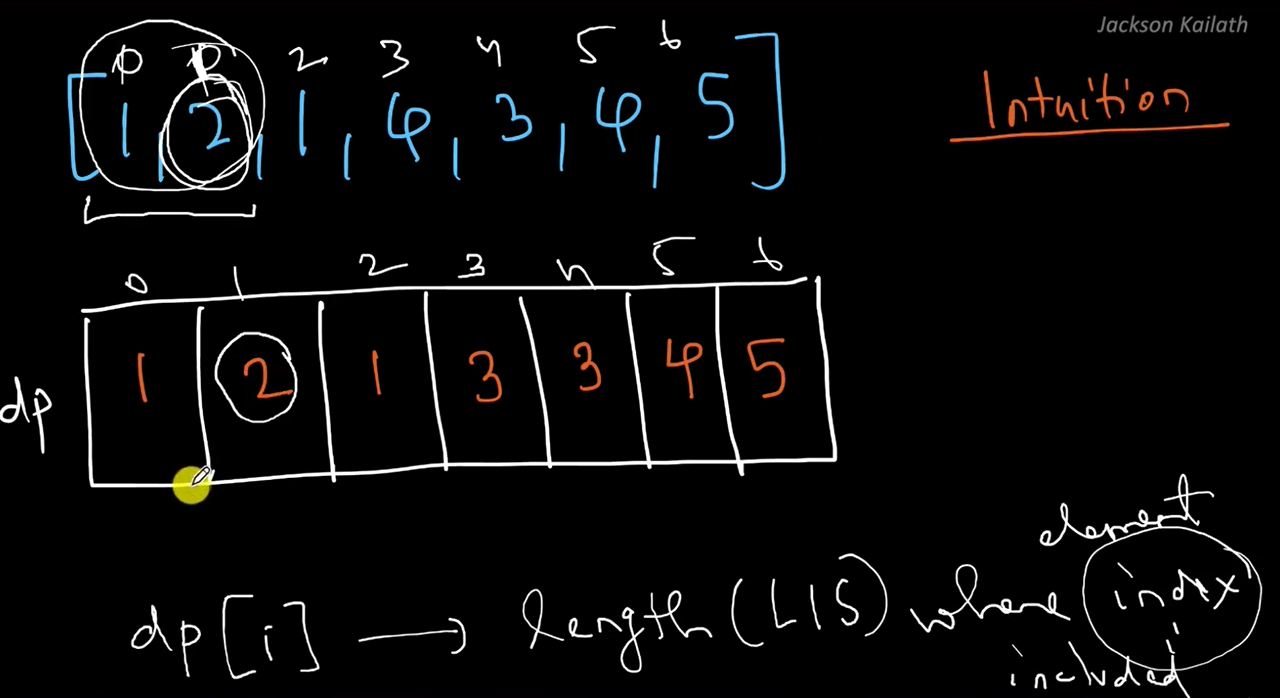 Jackson Kailath
0 1 2 3 4 5 6
[1, 2, 1, 4, 3, 4, 5]
Intuition
0 1 2 3 4 5 6
dp 1 2 1 3 3 4 5
element
dp[i] → length (LIS) where index i
included